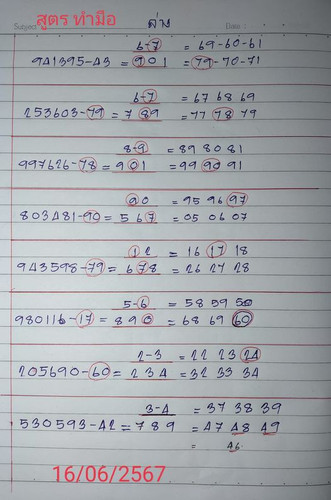 สูตร ทำมือ ล่าง
Subject Date
6-7 = 69-60-61
941395-43 = 901 = 79-70-71
6-7 = 67 68 69
253603-79 = 789 = 77 78 79
8-9 = 89 80 81
997626-78 = 901 = 99 90 91
90 = 95 96 97
803481-90 = 567 = 05 06 07
12 = 16 17 18
943598-79 = 678 = 26 27 28
5-6 = 58 59 50
980116-17 = 890 = 68 69 60
2-3 = 22 23 24
205690-60 = 234 = 32 33 34
3-4 = 37 38 39
530593-42 = 789 = 47 48 49
= 46
16/06/2567